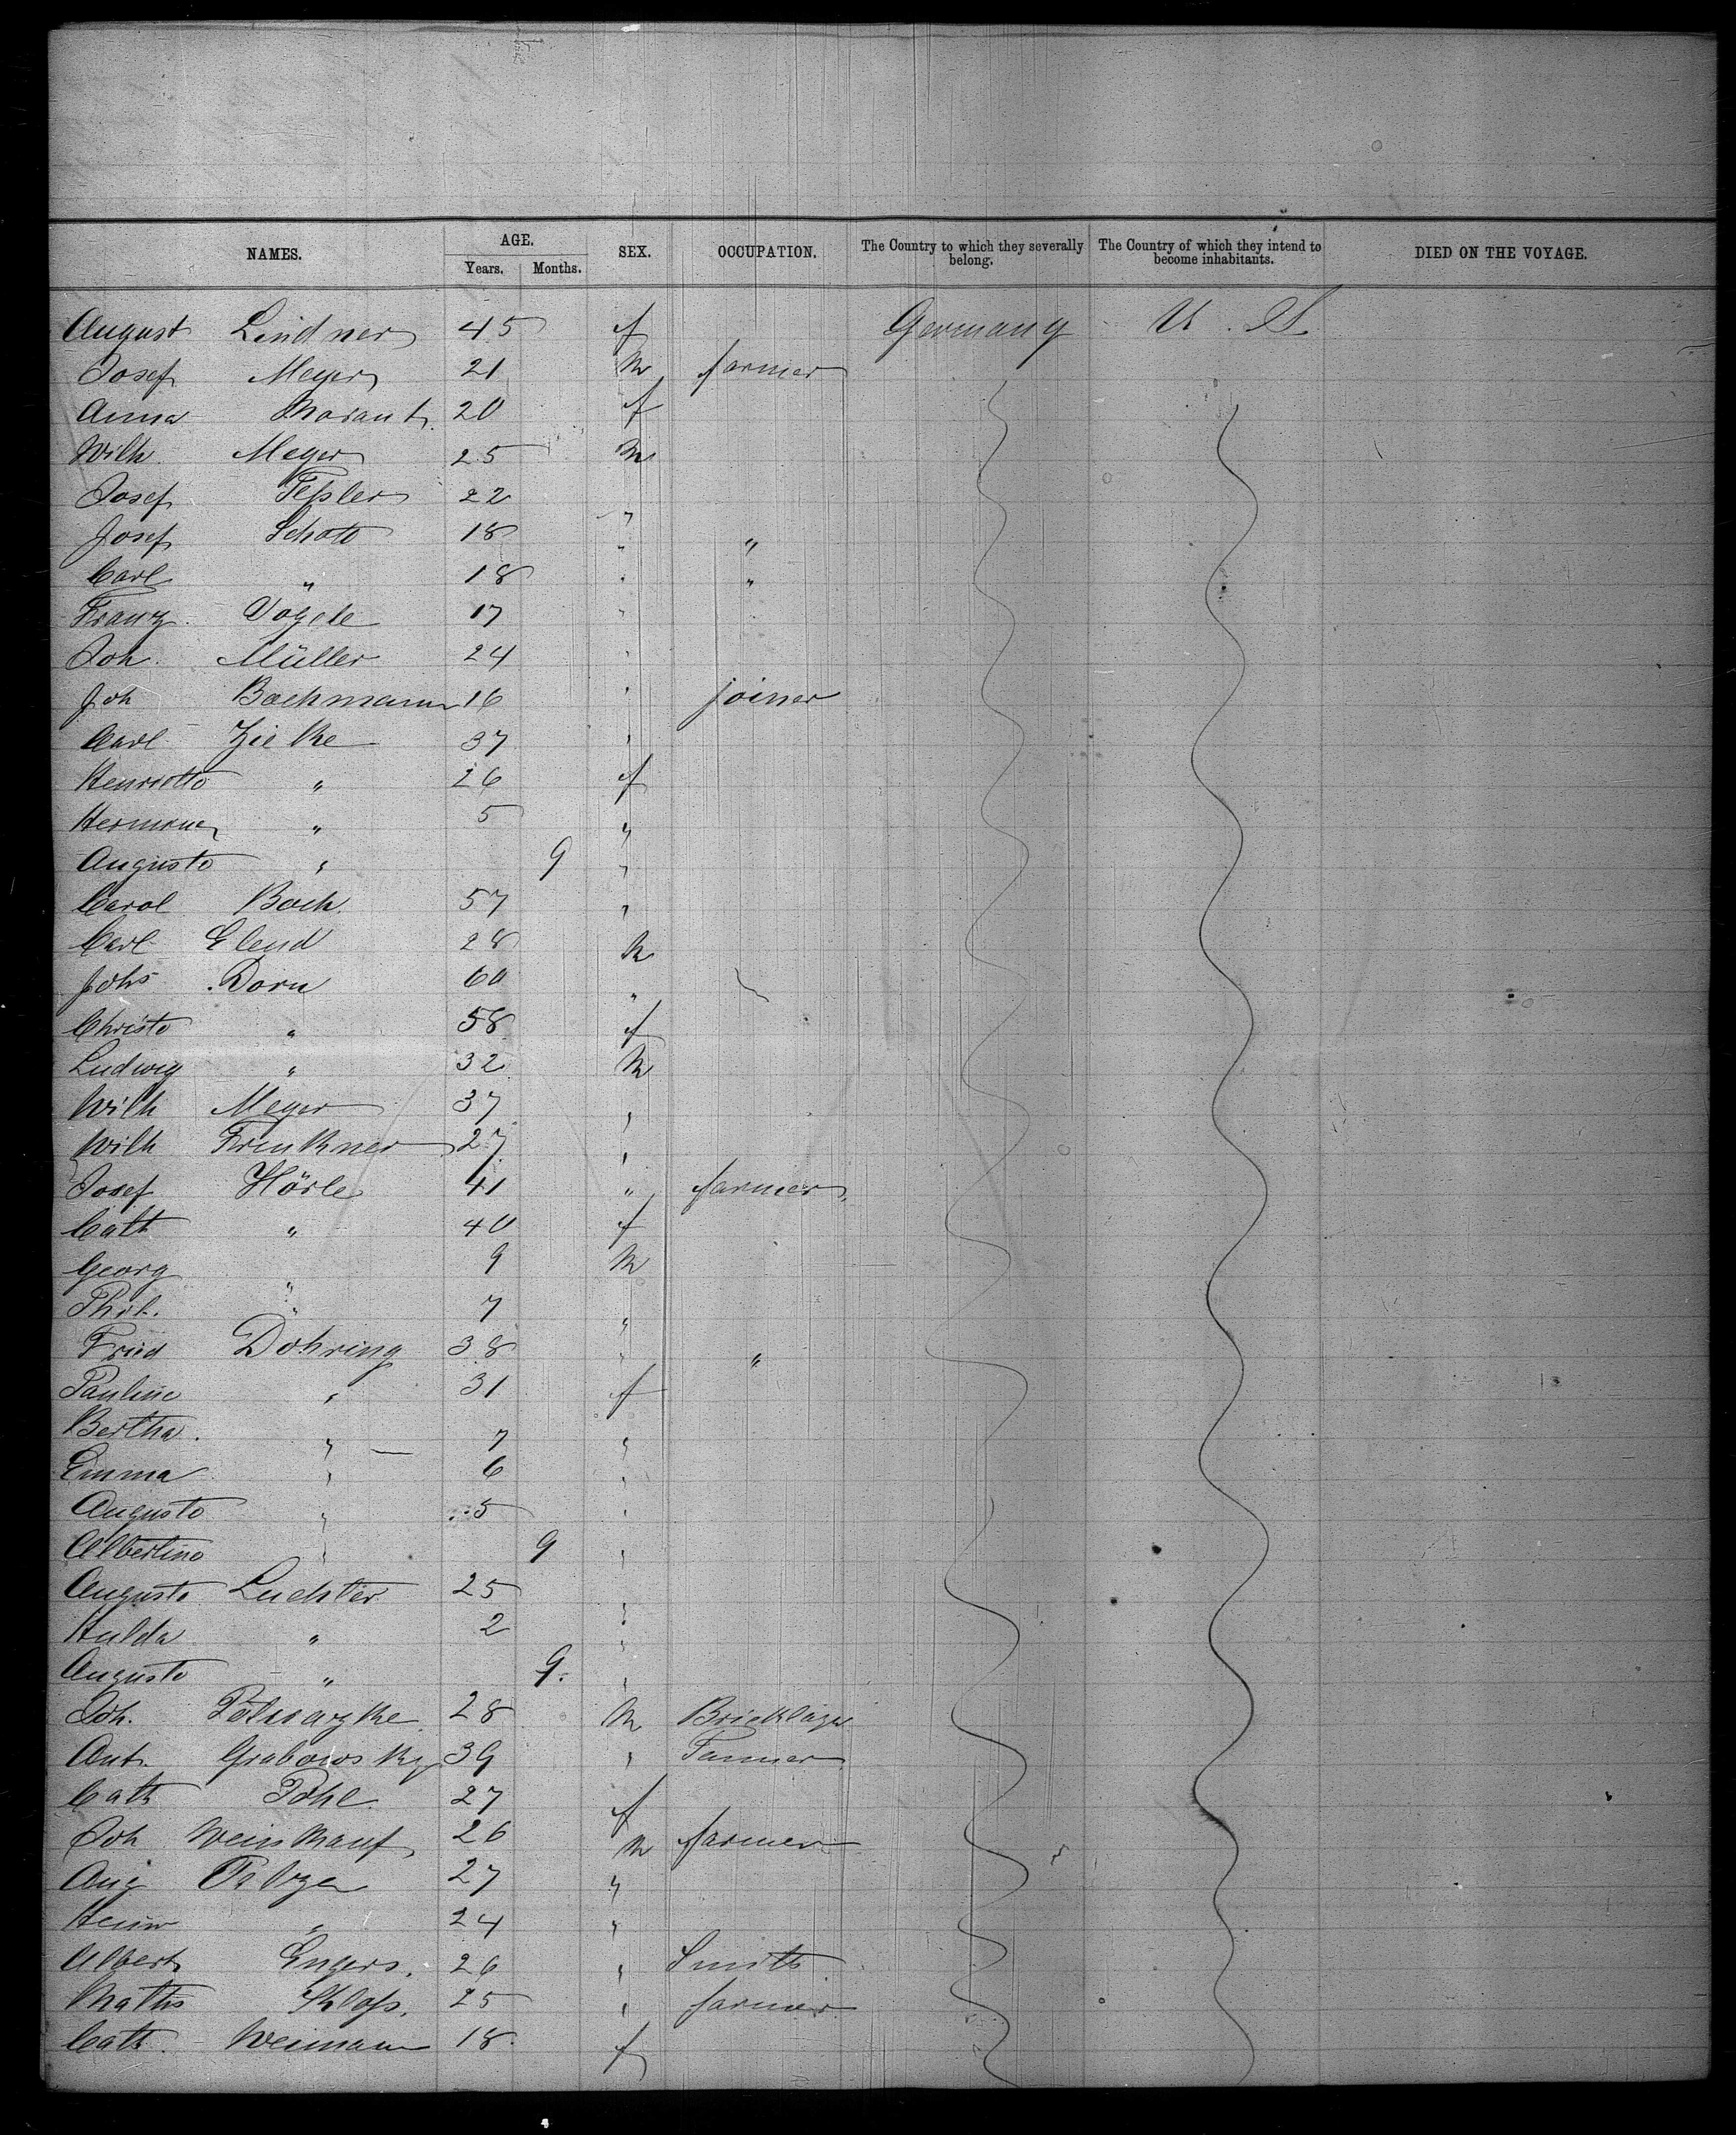 NAMES. AGE. SEX. OCCUPATION. The Country to which they severally belong. The Country of which they intend to become inhabitants. DIED ON THE VOYAGE.
Years. Months.
August Lindner 45 f Germany U. S.
Josef Meyer 21 m farmer
Anna 20 f
Wilh. Meyer 25 m
Josef Feßler 22 "
Josef Schott 18 " "
Carl " 18 " "
Franz Vögele 17 "
Joh. Müller 24 "
Joh Bachmann 16 " joiner
Carl Zielke 37 "
Henriette " 26 f
Hermann " 5 "
Auguste " 9 "
Carol Bach 57 "
Carl Elend 28 m
Johs Dorn 60 "
Christe " 58 f
Ludwig " 32 m
Wilh Meyer 37 "
Wilh 27 "
Josef Hörle 41 " farmer
Cath " 40 f
Georg " 9 m
" 7 "
Fried Dohring 38 " "
Pauline " 31 f
Bertha " 7 "
Emma " 6 "
Auguste " 5 "
Albertine " 9 "
Auguste Luchter 25 "
Hulda " 2 "
Auguste " 9. "
Joh. 28 m Bricklayer
Ant. Grabowsky 39 " Tanner
Cath Pohl 27 f
Joh Weinkauf 26 m farmer
Aug 27 "
Heinr " 24 "
Albert Engers. 26 " Smith
Maths Kloß. 25 " farmer
Cath. Weimann 18 f